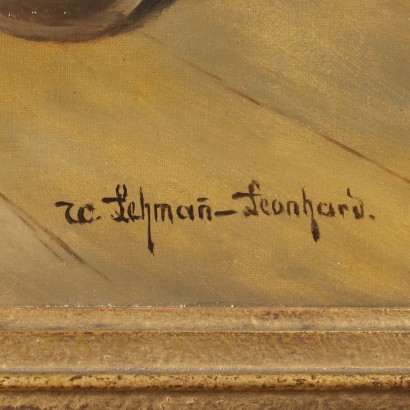 W. Lehmañ–Leonhard.